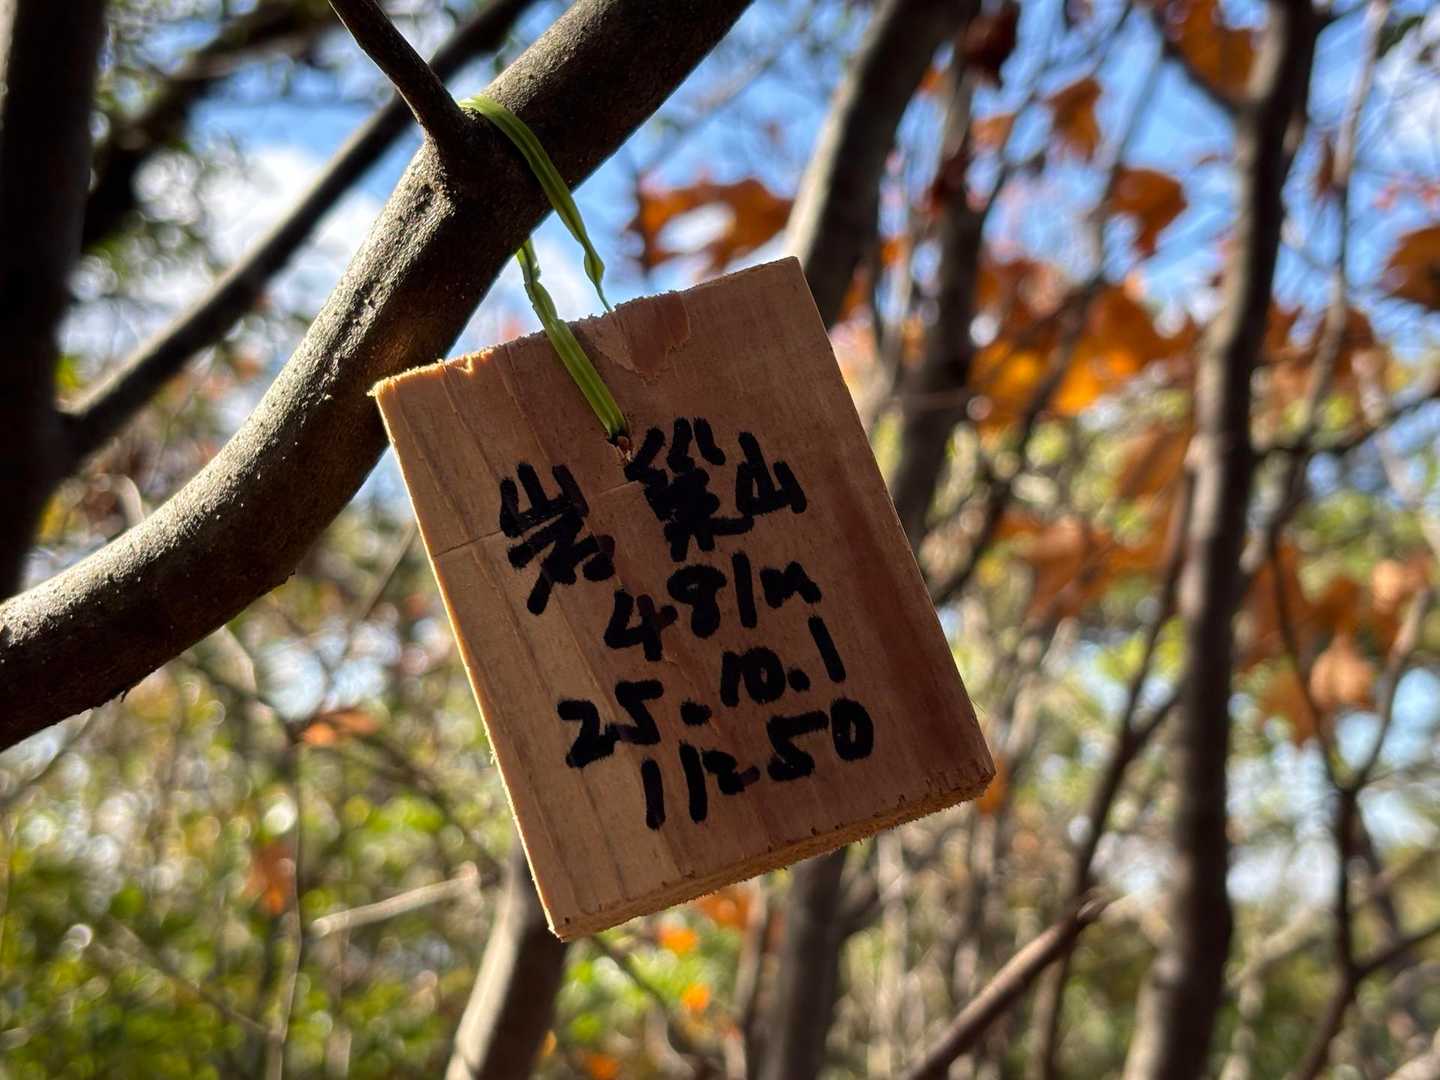 岩巣山
481m
25.10.1
11250